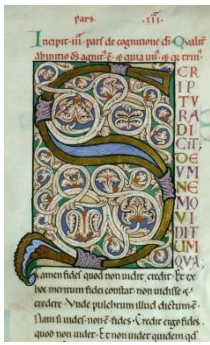 pars .III.
Incipit .iii. pars de cognitione di. Qualit
ab initio ds agnit' ē. & quia un' & qr trin'.
S
CRIP
TURA
DICIT;
DEUM
NEMO
VIDIT
UMQUA;
Tamen fides quod non uidet, credit. Et ex
hoc meritum fidei constat. non uidisse &
credere. Vnde pulchrum illud dictum ē.
Nam si uides. non ē fides. Credit ergo fides.
quod non uidet. Et non uidet quidem qd